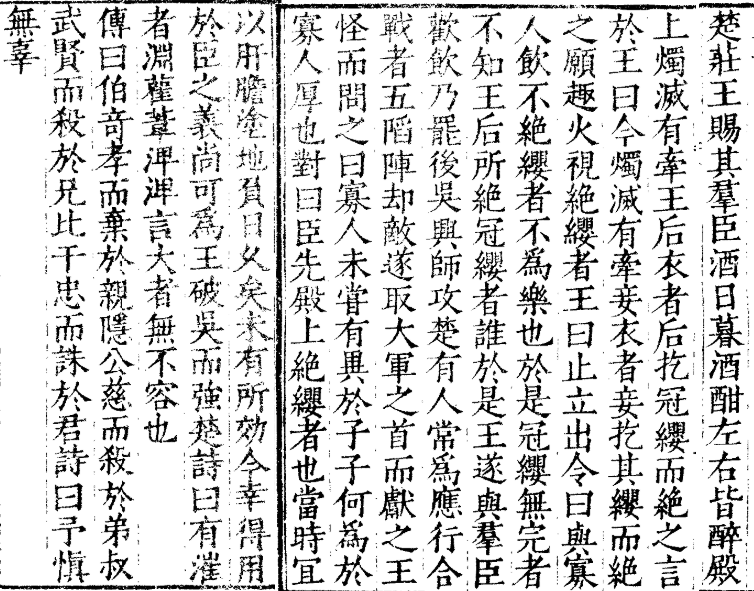 楚莊王賜其羣臣酒日暮酒酣左右皆醉殿
上燭滅有牽王后衣者后扢冠纓而絶之言
於王曰今燭滅有牽妾衣者妾扢其纓而絶
之願趣火視絶纓者王曰止立出令曰與寡
人飲不絶纓者不爲樂也於是冠纓無完者
不知王后所絶冠纓者誰於是王遂與羣臣
歡飲乃罷後吳興師攻楚有人常爲應行合
戰者五陷陣却敵遂取大軍之首而獻之王
怪而問之曰寡人未甞有異於子子何爲於
寡人厚也對曰臣先殿上絶纓者也當時宜
以肝膽塗地負日久矣未有所効今幸得用
於臣之義尚可爲王破吳而強楚詩曰有漼
者淵雚葦渒渒言大者無不容也
傳曰伯奇孝而棄於親隱公慈而殺於弟叔
武賢而殺於兄比干忠而誅於君詩曰予慎
無辜